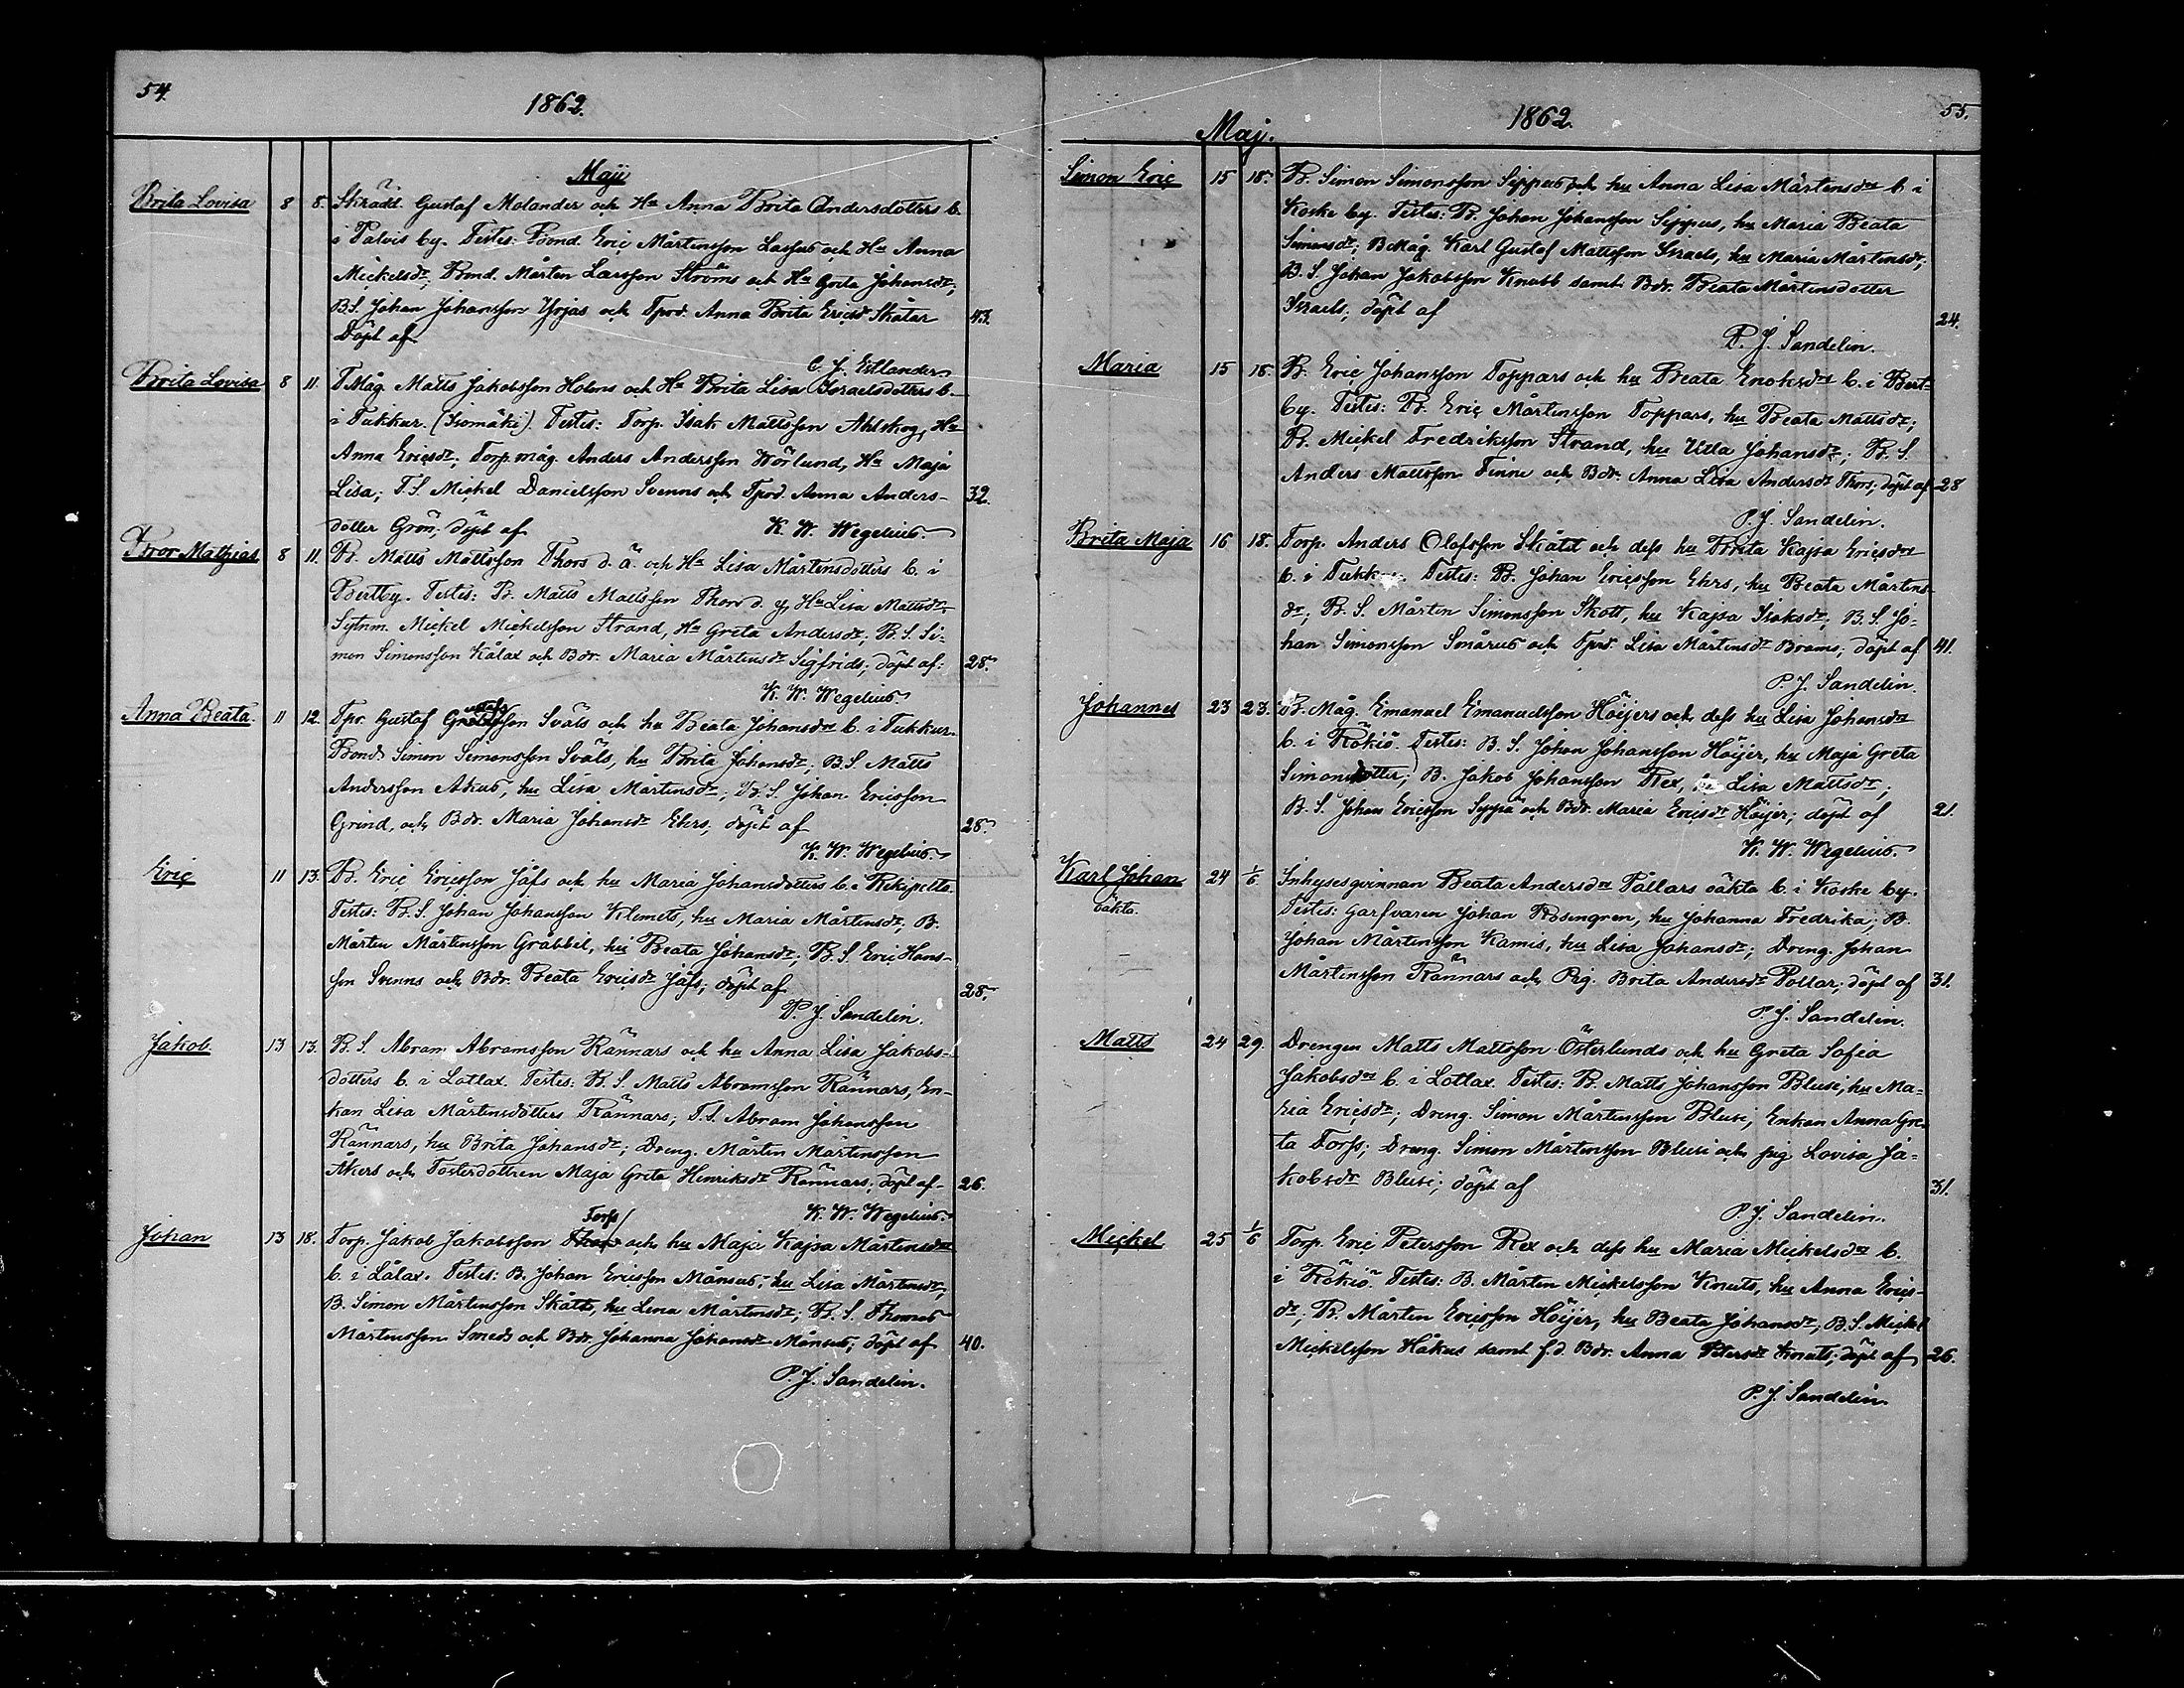 54.
1862.
Maji
Brita Lovisa 8 8. Skrädd. Gustaf Molander och Hu Anna Brita Andersdotters b.
i Palvis by. Testes: Bond. Eric Mårtensson Lassus och Hu Anna
Mickelsdr; Bond. Mårten Larsson Ströms och Hu Greta Johansdr;
BS. Johan Johansson Yrjas och Tprd. Anna Brita Ericsdr Skåtar 43.
Döpt af
C. J. Estlander
Brita Lovisa 8 11. TMåg Matts Jakobsson Holms och Hu Brita Lisa Israelsdotters b.
i Tukkur. (Isomäki). Testes: Torp. Isak Mattsson Ahlskog, Hu
Anna Ericsdr; Torp.måg Anders Andersson Wörlund, Hu Maja
Lisa; T.S. Mickel Danielsson Svenns och Tprd. Anna Anders- 32.
dotter Grön; döpt af K. W. Wegelius.
Bror Mathias 8 11. B. Matts Mattsson Thors d. ä. och Hu Lisa Mårtensdotters b. i
Bertby. Testes: B. Matts Mattsson Thors d. y, Hu Lisa Mattsdr;
Sytnm. Mickel Mickelsson Strand, Hu Greta Andersdr; B.S. Si-
mon Simonsson Kålax och Bdr. Maria Mårtensdr Sigfrids; döpt af: 28.
K. W. Wegelius.
Anna Beata. 11 12. Tpr. Gustaf son Svåls och hu Beata Johansdrs b. i Tukkur.
Bond. Simon Simonsson Svåls, hu Brita Johansdr; B.S. Matts
Andersson Akus, hu Lisa Mårtensdr; B.S. Johan Ericsson
Grind, och Bdr. Maria Johansdr Ehrs; döpt af 28.
K. W. Wegelius.
Eric 11 13. B. Eric Ericsson Jåfs och hu Maria Johansdotters b. i Rekipelto.
Testes: B.S. Johan Johansson Klemets, hu Maria Mårtensdr; B.
Mårten Mårtensson Gråbbil, hu Beata Johansdr; B.S. Eric Hans-
son Svenns och Bdr. Beata Ericsdr Jåfs; döpt af 28.
P. J. Sandelin.
Jakob. 13 13. B. S. Abram Abramsson Rännars och hu Anna Lisa Jakobs-
dotters b. i Lotlax. Testes: B. S. Matts Abramsson Rännars, En-
kan Lisa Mårtensdotters Rännars; T.S. Abram Johansson
Rännars, hu Brita Johansdr; Dreng. Mårten Mårtensson
Åkers och Fosterdottren Maja Greta Henriksdr Rännars; döpt af 26.
K. W. Wegelius.
Torfs
Johan 13 18. Torp. Jakob Jakobsson och hu Maja Kajsa Mårtensdrs
b. i Lålax. Testes: B. Johan Ericsson Månsus, hu Lisa Mårtensdr;
B. Simon Mårtensson Skått, hu Lena Mårtensdr; B. S. Thomas
Mårtensson Smeds och Bdr. Johanna Johansdr Månsus; döpt af 40.
P. J. Sandelin.
55.
1862.
Maj.
Simon Eric 15 18. B. Simon Simonsson Sippus och hu Anna Lisa Mårtensdrs b. i
Koske by. Testes: B. Johan Johansson Sippus, hu Maria Beata
Simonsdr; BMåg. Karl Gustaf Mattsson Israels, hu Maria Mårtensdr;
B. S. Johan Jakobsson Knubb samt Bdr. Beata Mårtensdotter
Israels; döpt af 24.
P. J. Sandelin.
Maria 15 18. B. Eric Johansson Toppars och hu Beata Enoksdrs b. i Bert-
by. Testes: B. Eric Mårtensson Toppars, hu Beata Mattsdr;
B. Mickel Fredriksson Strand, hu Ulla Johansdr; B. S.
Anders Mattsson Finne och Bdr. Anna Lisa Andersdr Thors; döpt af 28
P. J. Sandelin.
Brita Maja 16 18. Torp. Anders Olofsson Skått och dess hu Brita Kajsa Ericsdrs
b. i Testes: B. Johan Ericsson Ehrs, hu Beata Mårtens-
dr; B. S. Mårten Simonsson Skott, hu Kajsa Isaksdr; B.S. Jo-
han Simonsson Smårus och Tprd. Lisa Mårtensdr Brams; döpt af 41.
P. J. Sandelin.
Johannes 23 23. B. Måg. Emanuel Emanuelsson Höijers och dess hu Lisa Johansdrs
b. i Rökiö. Testes: B. S. Johan Johansson Höijer, hu Maja Greta
Simonsdotter; B. Jakob Johansson Rex, hu Lisa Mattsdr;
B. S. Johan Ericsson Syria och Bdr. Maria Ericsdr Höijer; döpt af 21.
K. W. Wegelius.
Karl Johan 24 1/6 Inhysesqvinnan Beata Andersdrs Pållars oäkta b. i Koske by.
oäkta. Testes: Garfvaren Johan Rosengren, hu Johanna Fredrika; B.
Johan Mårtensson Kamis, hu Lisa Johansdr; Dreng. Johan
Mårtensson Rännars och Pig. Brita Andersdr Pollar; döpt af 31.
P. J. Sandelin.
Matts 24 29. Drengen Matts Mattsson Österlunds och hu Greta Sofia
Jakobsdrs b. i Lotlax. Testes: B. Matts Johansson Blusi, hu Ma-
ria Ericsdr; Dreng. Simon Mårtensson Blusi, Enkan Anna Gre-
ta Torfs; Dreng. Simon Mårtensson Blusi och pig. Lovisa Ja-
kobsdr Blusi; döpt af 31.
P. J. Sandelin.
Mickel 25 1/6 Torp. Eric Petersson Rex och dess hu Maria Mickelsdrs b.
i Rökiö. Testes: B. Mårten Mickelsson Knuts, hu Anna Erics-
dr; B. Mårten Ericsson Höijer, hu Beata Johansdr; B. S. Mickel
Mickelsson Håkus samt f.d. Bdr. Anna Petersdr Knuts; döpt af 26.
P. J. Sandelin.